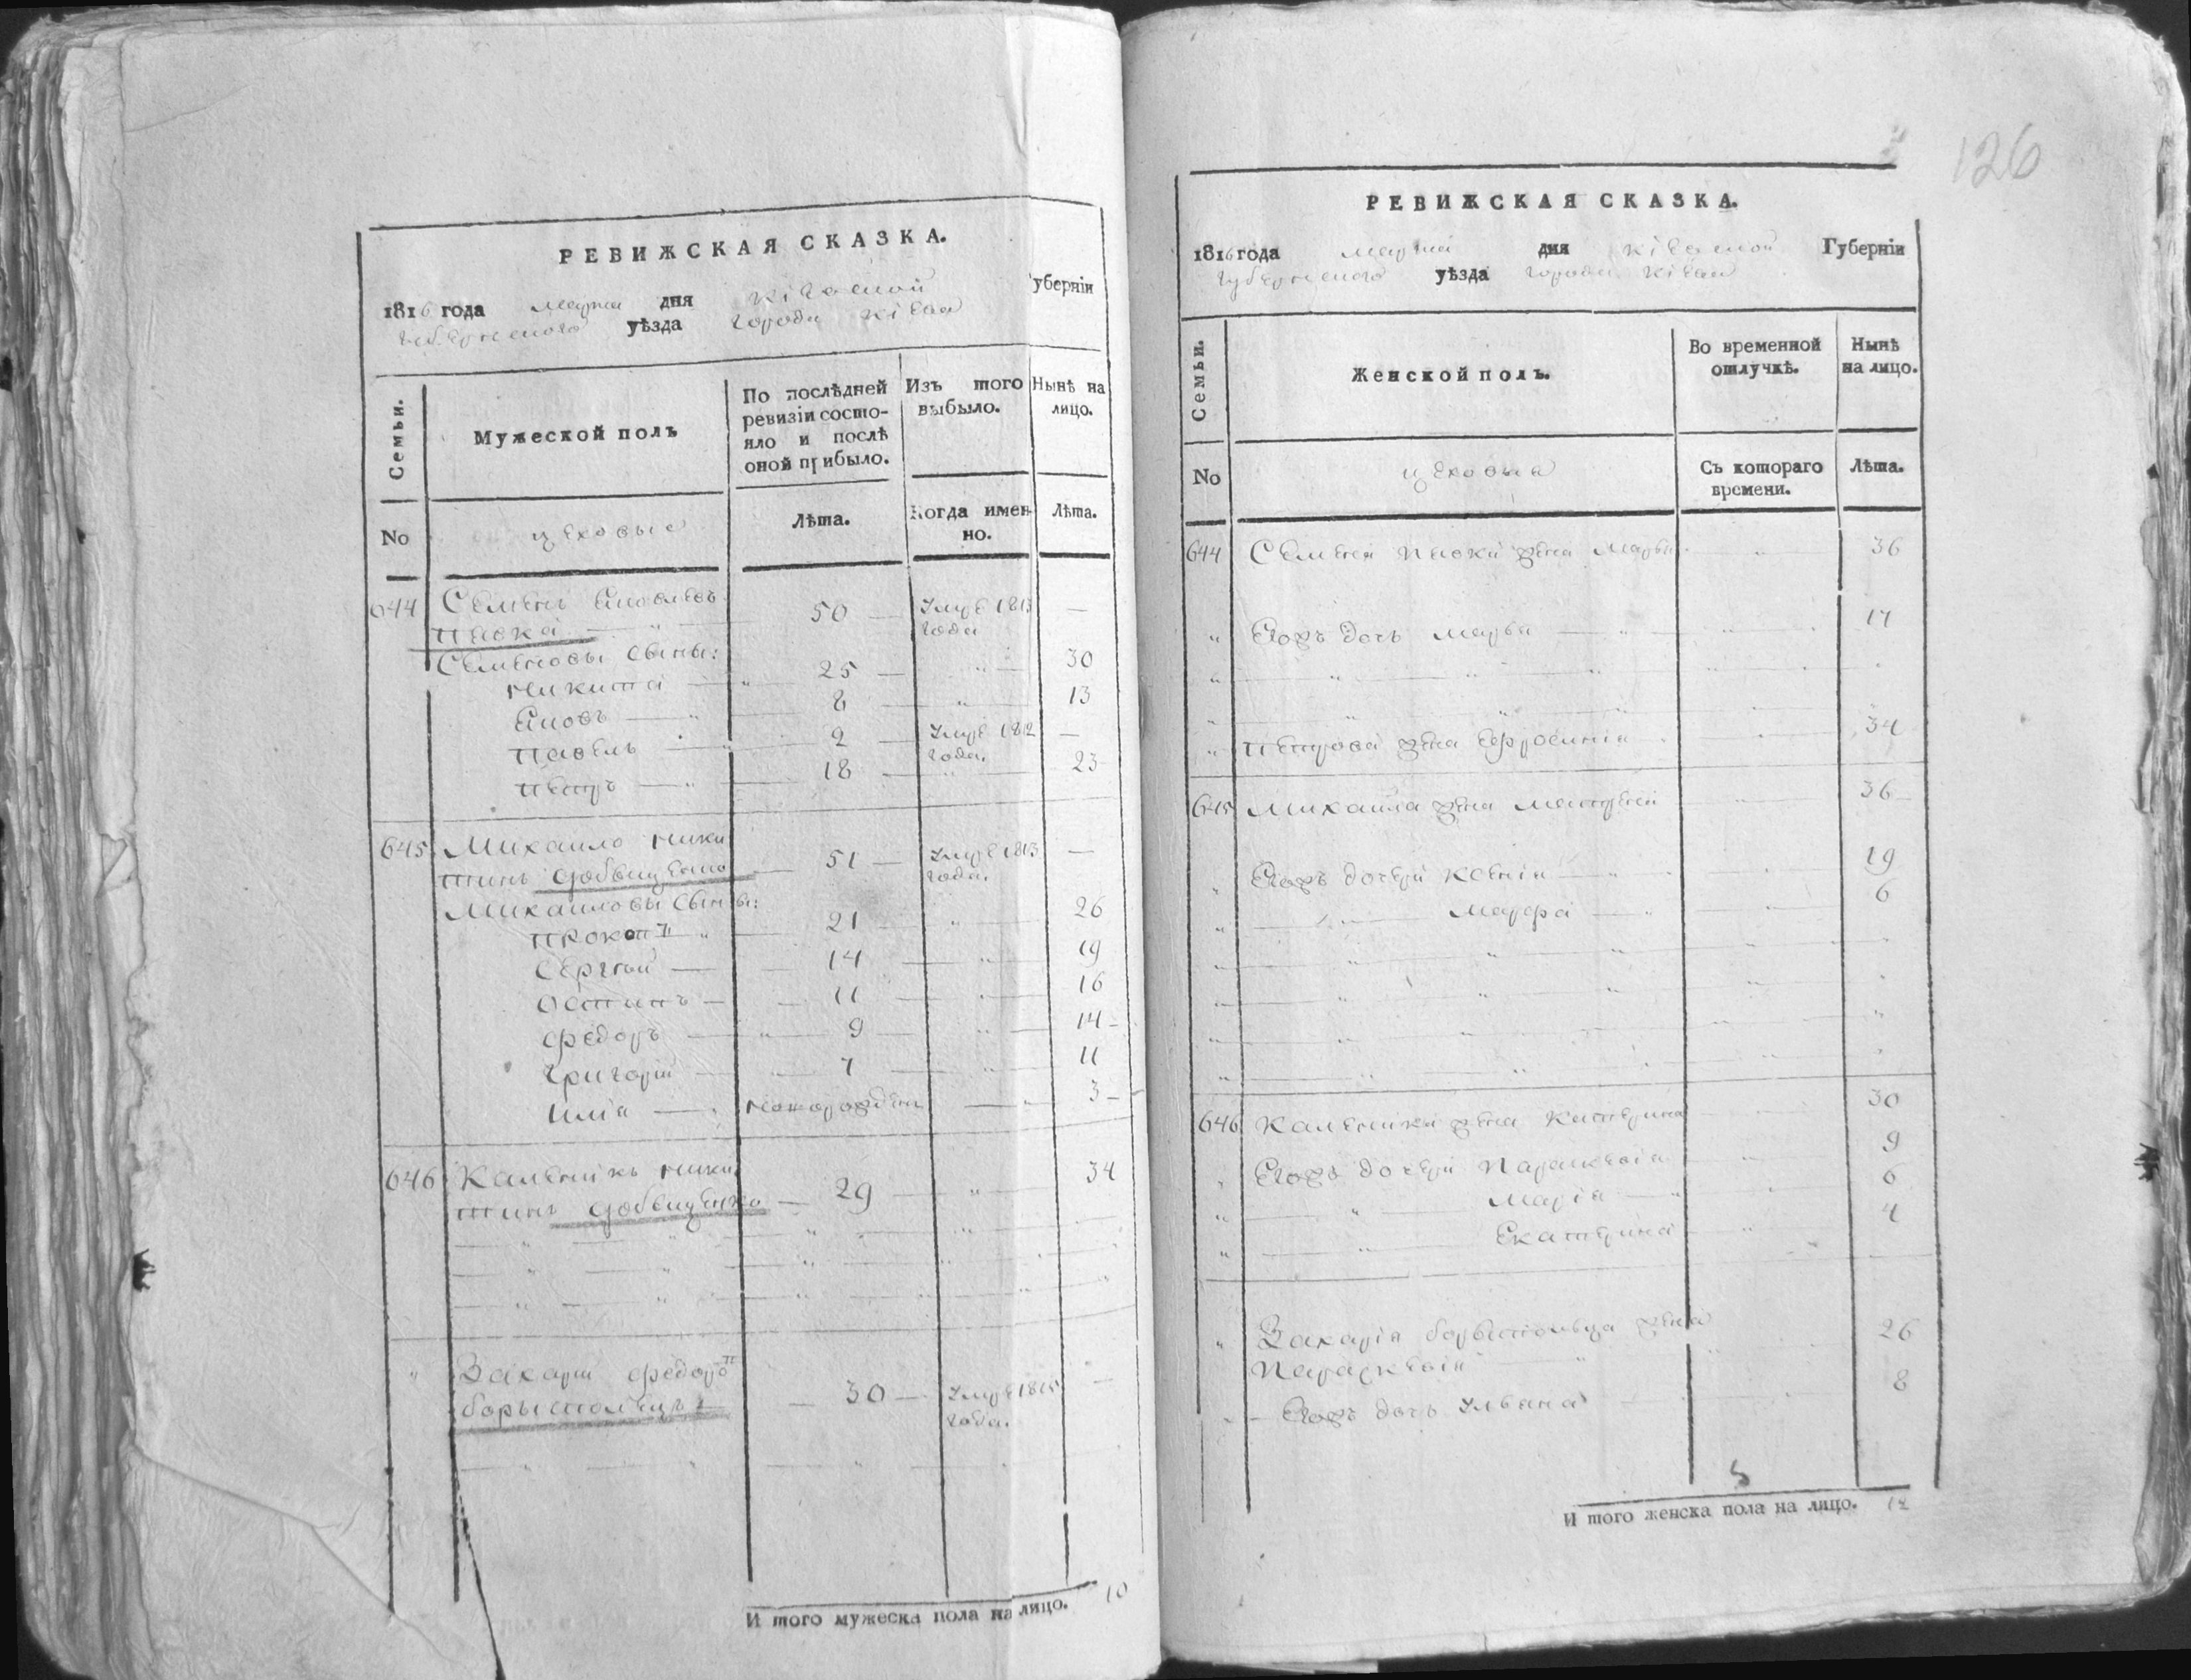 РЕВИЖСКАЯ СКАЗКА.
1816 года марта дня Кіевской Губерніи
Губернского уѣзда города Кіева
Семьи.
Мужеской полъ
По послѣдней
ревизіи состо-
яло и послѣ
оной прибыло.
Изъ того
выбыло.
Нынѣ на
лицо.
No
цеховые
Лѣта.
Когда имен-
но.
Лѣта.
644 Семенъ Яковлевъ 50 Умре 1813 —
года
Семеновы сыны:
Никита — 25 — 30
Яковъ — 8 — 13
Павелъ — 2 — Умре 1812 —
года.
Петръ — 18 — 23
645 Михайло Ники
тинъ 51 — Умре 1813 —
года.
Михайловы сыны:
Прокопъ 21 26
Сергѣй — 14 19
Остапъ — 11 16
Федоръ — 9 — 14
Григорій — 7 11
Илія — новорожденъ 3
646 Каленикъ Ники 34
тинъ — 29
Захарій Федоровъ
Борыспо́лецъ — 30 — Умре 1815 —
года.
И того мужеска пола на лицо. 10
126
РЕВИЖСКАЯ СКАЗКА.
1816 года марта дня Кіевской Губерніи
Губернского уѣзда города Кіева
Семьи.
Женской полъ.
Во временной
отлучкѣ.
Нынѣ
на лицо.
No
цеховыя
Съ котораго
времени.
Лѣта.
644 Семена жена Марья 36
Егожъ дочь Марья 17
Петрова жена Ефросинія 34
645 Михайла жена 36
Егожъ дочери Ксенія 19
Марфа 6
646 Каленика жена Катерина 30
Егожъ дочери Параскевія 9
Марія 6
Екатерина 4
Захарія Борыспольца жена
Параскевія 26
Егожъ дочь Ульяна 8
И того женска пола на лицо. 12